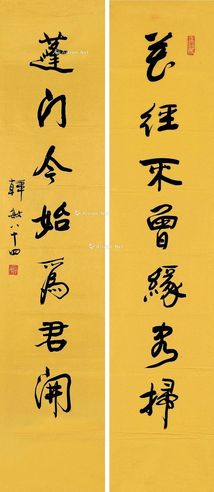 花径不曾缘客掃
蓬门今始爲君開
韓敏八十四